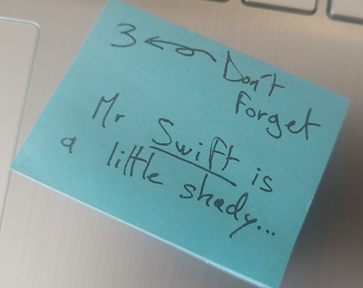 3 ← Don't
forget
Mr Swift is
a little shady...